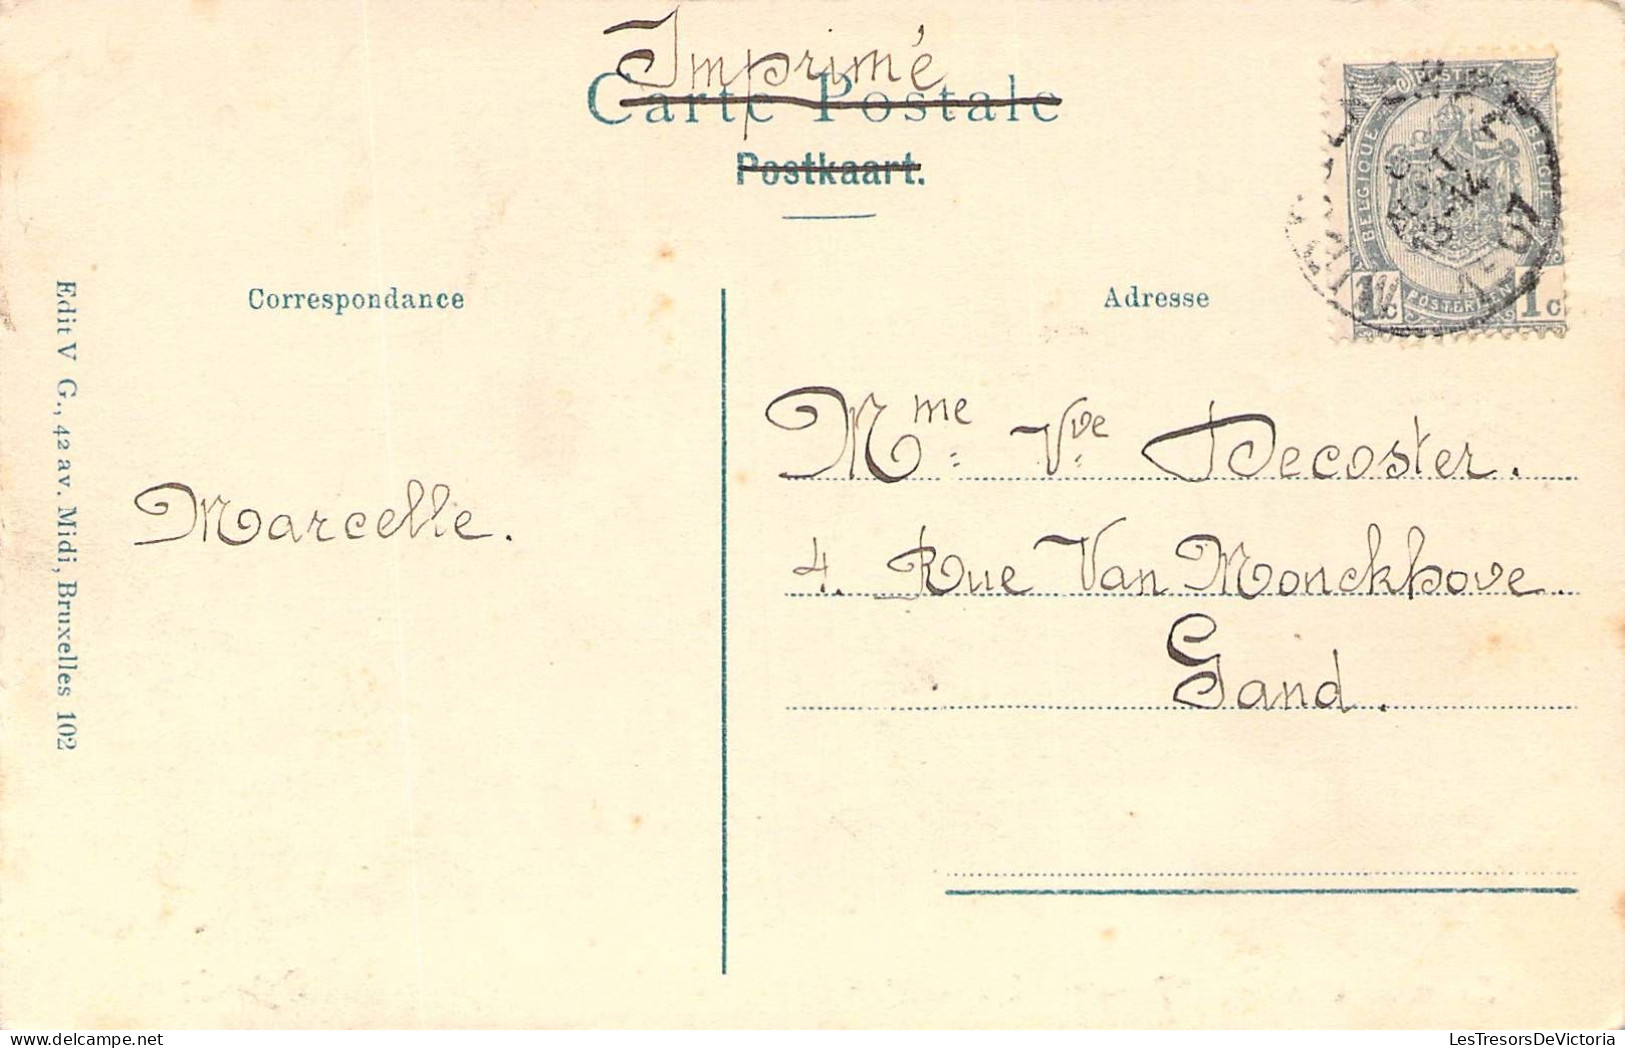 Imprimé
Carte Postale
Postkaart.
Correspondance
Adresse
BELGIQUE
BELGIË
1c
1c
07
Edit V G., 42 av. Midi, Bruxelles 102
Marcelle.
Mme Vve Decoster.
4. Rue Van Monckhove.
Gand.
LesTresorsDeVictoria.com